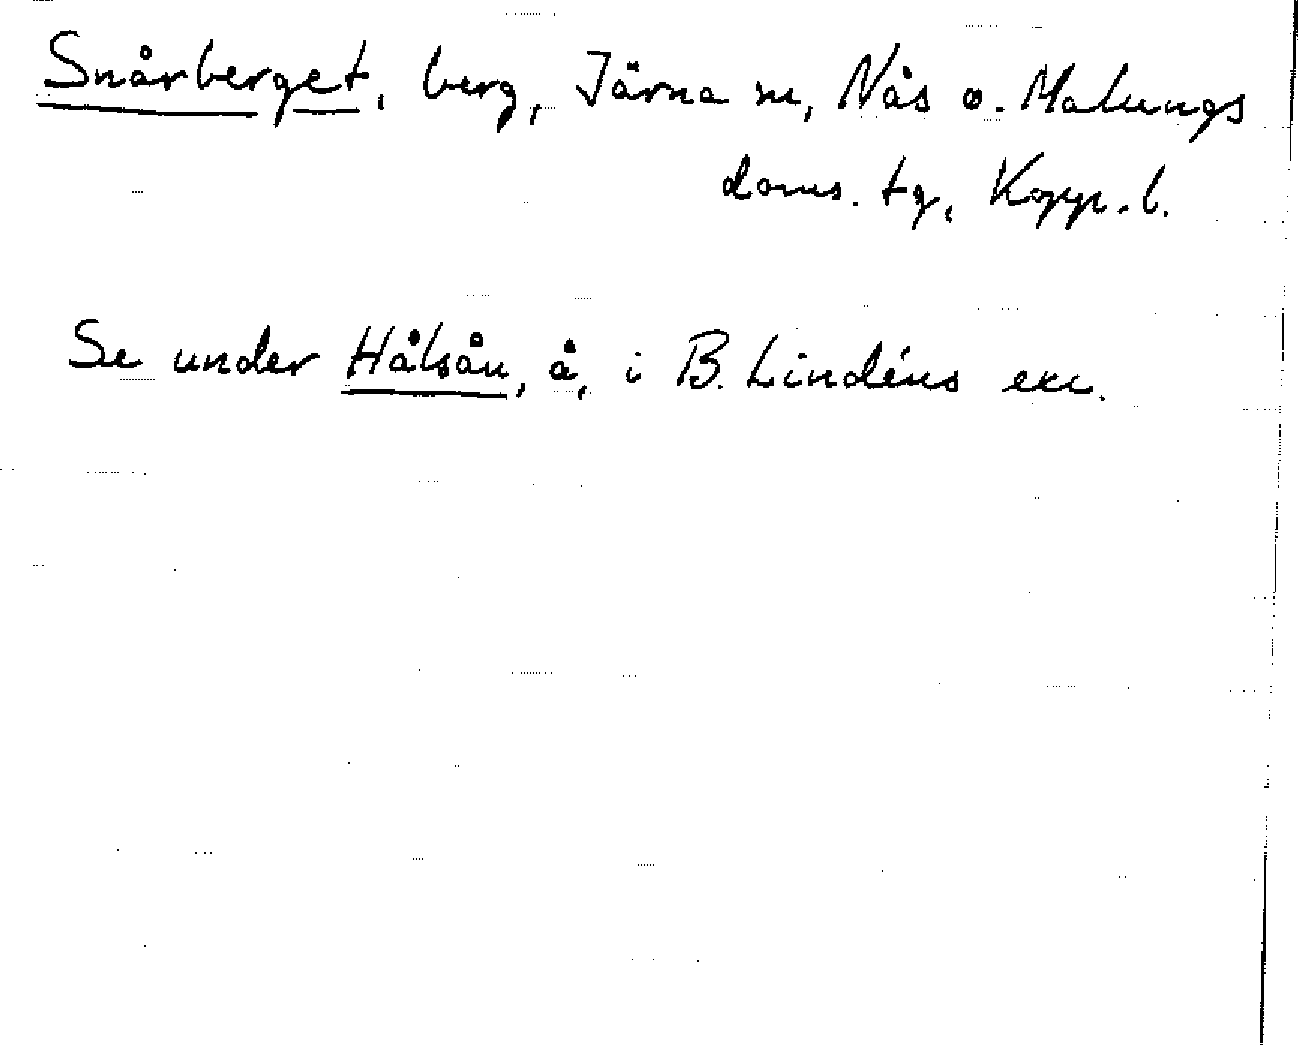 Snårberget, berg, Järna sn, Nås o. Malungs
doms. tg, Kopp. l.
Se under Hålsån, å, i B. Lindéns exc.